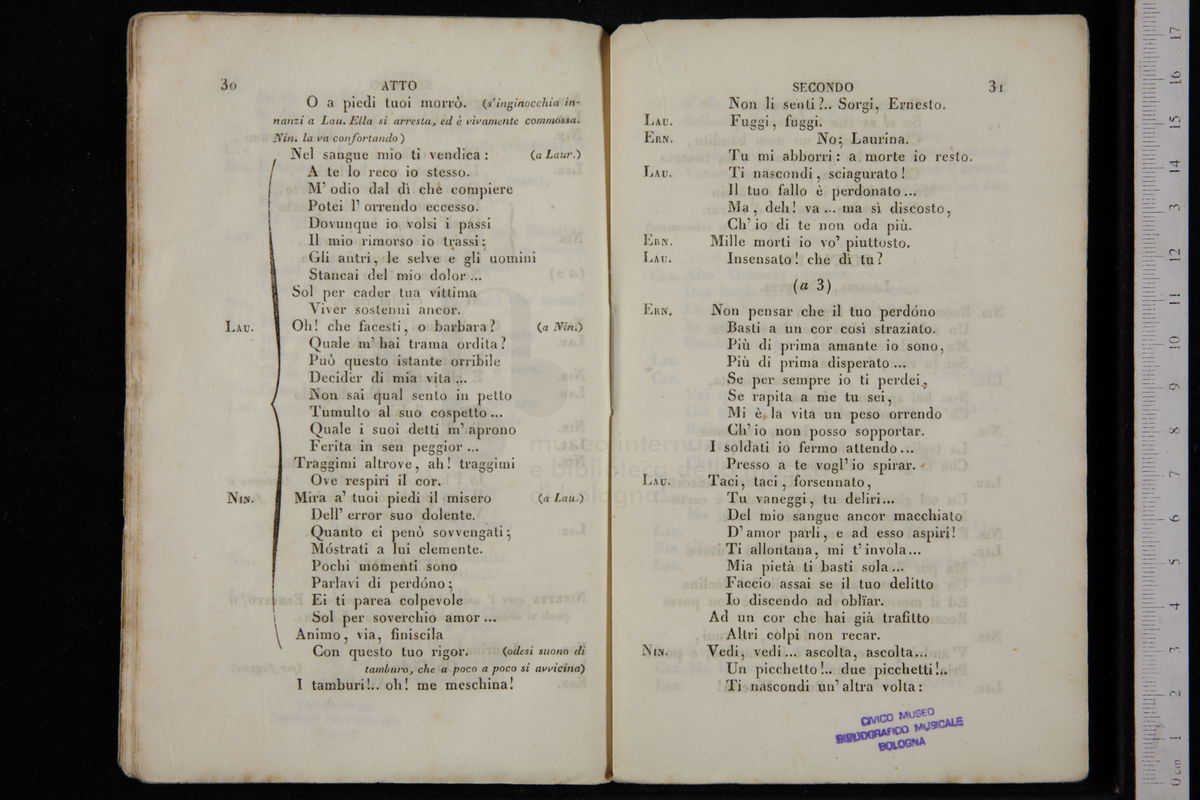 30
ATTO
O a piedi tuoi morrò. (s'inginocchia in-
nanzi a Lau. Ella si arresta, ed è vivamente commossa.
Nin. la va confortando)
Nel sangue mio ti vendica: (a Laur.)
A te lo reco io stesso.
M' odio dal dì che compiere
Potei l' orrendo eccesso.
Dovunque io volsi i passi
Il mio rimorso io trassi;
Gli antri, le selve e gli uomini
Stancai del mio dolor...
Sol per cader tua vittima
Viver sostenni ancor.
LAU. Oh! che facesti, o barbara? (a Nin.)
Quale m' hai trama ordita?
Può questo istante orribile
Decider di mia vita...
Non sai qual sento in petto
Tumulto al suo cospetto...
Quale i suoi detti m' aprono
Ferita in sen peggior...
Traggimi altrove, ah! traggimi
Ove respiri il cor.
NIN. Mira a' tuoi piedi il misero (a Lau.)
Dell' error suo dolente.
Quanto ei penò sovvengati;
Móstrati a lui clemente.
Pochi momenti sono
Parlavi di perdóno;
Ei ti parea colpevole
Sol per soverchio amor...
Animo, via, finiscila
Con questo tuo rigor. (odesi suono di
tamburo, che a poco a poco si avvicina)
I tamburi!.. oh! me meschina!
SECONDO
31
Non li senti?.. Sorgi, Ernesto.
LAU. Fuggi, fuggi.
ERN. No; Laurina.
Tu mi abborri: a morte io resto.
LAU. Ti nascondi, sciagurato!
Il tuo fallo è perdonato...
Ma, deh! va... ma sì discosto,
Ch' io di te non oda più.
ERN. Mille morti io vo' piuttosto.
LAU. Insensato! che di tu?
(a 3)
ERN. Non pensar che il tuo perdóno
Basti a un cor così straziato.
Più di prima amante io sono,
Più di prima disperato...
Se per sempre io ti perdei,
Se rapita a me tu sei,
Mi è la vita un peso orrendo
Ch' io non posso sopportar.
I soldati io fermo attendo...
Presso a te vogl' io spirar.
LAU. Taci, taci, forsennato,
Tu vaneggi, tu deliri...
Del mio sangue ancor macchiato
D' amor parli, e ad esso aspiri!
Ti allontana, mi t' invola...
Mia pietà ti basti sola...
Faccio assai se il tuo delitto
Io discendo ad oblïar.
Ad un cor che hai già trafitto
Altri colpi non recar.
NIN. Vedi, vedi... ascolta, ascolta...
Un picchetto!.. due picchetti!..
Ti nascondi un' altra volta:
CIVICO MUSEO
BIBLIOGRAFICO MUSICALE
BOLOGNA